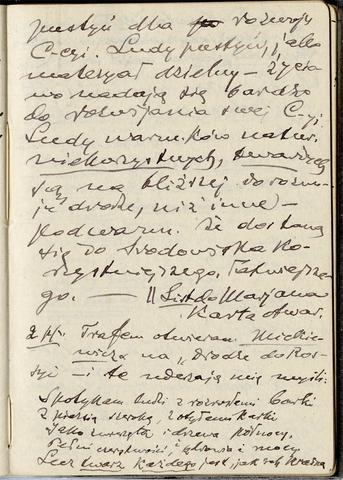 pustyń dla rozwoju
C-cyi. Ludy pustyń, jako
materyał dzielny – życia
wo nadają się bardzo
do rozwijania swej C-yi.
Ludy warunków natur.
niekorzystnych, twardych
są na bliższej do rozwo-
ju drodze, niż inne –
pod warun. że dostaną
się do środowiska ko-
rzystniejszego, łatwiejsze-
go. — || List do Marjana
Karta otwar.
Trafem otwieram Mickie-
wicza na „Drodze do Ros-
syi – i te uderzają mię myśli:
Spotykam ludzi z rozrosłemi barki
Z piersią szeroką, z otyłemi karki
Jako zwierzęta i drzewa północy,
Pełni czerstwości, i zdrowia i mocy
Lecz twarz każdego jest, jak ich kraina